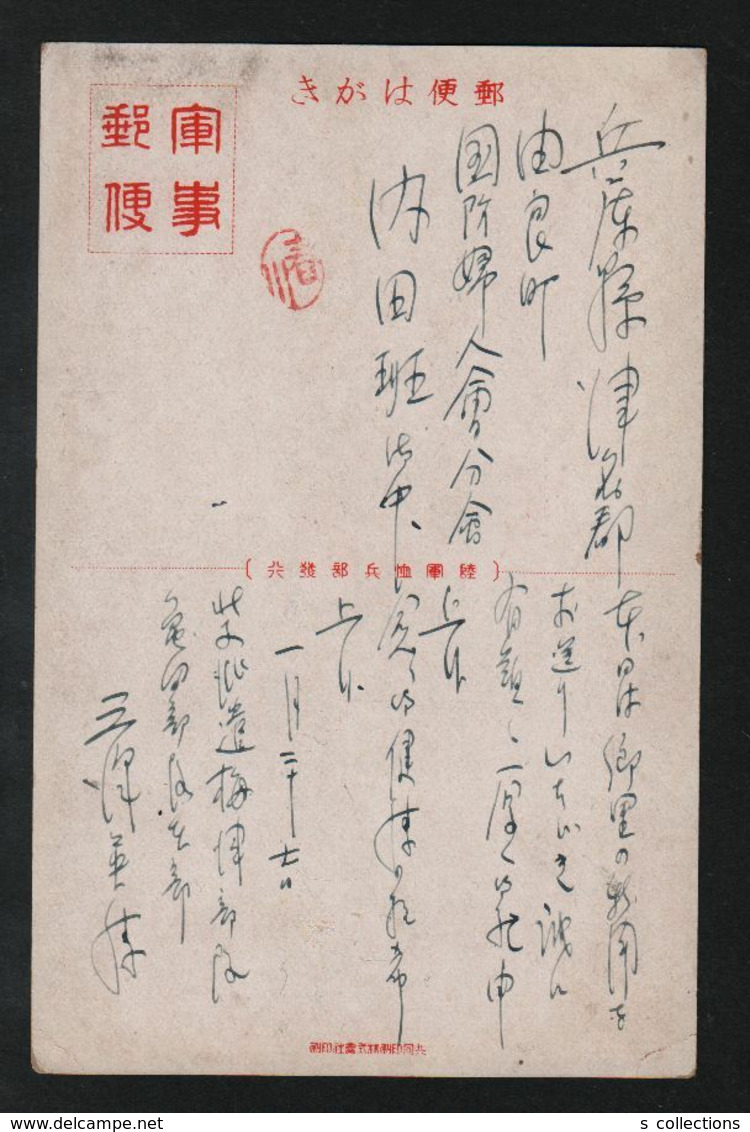 郵便はがき
軍事
郵便
兵庫縣津名郡
由良町
国防婦人會分會
内田班御中
陸軍恤兵部發行
本日は郷里の新聞を
お送りいたゞき誠に
有難く厚く御礼申
上候
御健康を祈
上候
一月二十七日
北支派遣梅津部隊
亀田部隊本部
三澤
共同印刷株式會社印刷
s collections